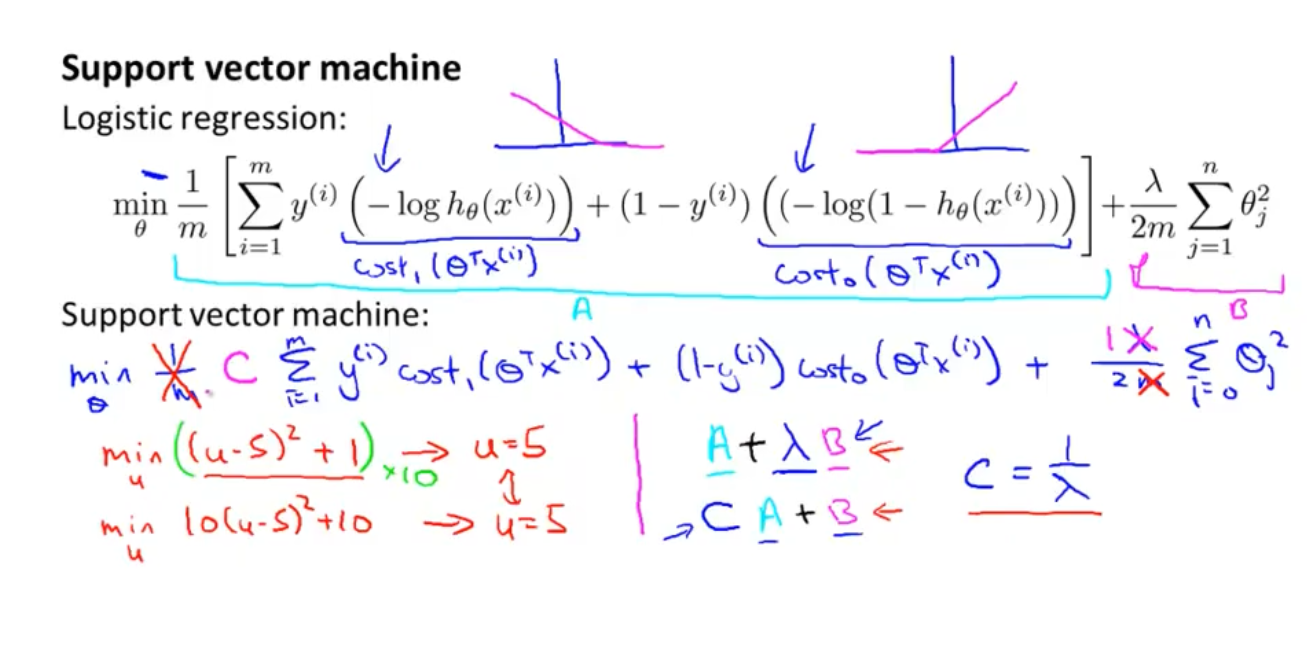 Support vector machine
Logistic regression:
min_θ 1/m [ ∑_{i=1}^{m} y^{(i)} (− log h_θ(x^{(i)})) + (1 − y^{(i)}) ((− log(1 − h_θ(x^{(i)})))) ] + λ/2m ∑_{j=1}^{n} θ_j^2
cost₁(θᵀx^{(i)}) cost₀(θᵀx^{(i)})
A B
Support vector machine:
min_θ 1/m C ∑_{i=1}^{m} y^{(i)} cost₁(θᵀx^{(i)}) + (1-y^{(i)}) cost₀(θᵀx^{(i)}) + 1 λ/2m ∑_{i=0}^{n} θ_j^2
min_u ((u-5)² + 1) ×10 → u=5
min_u 10(u-5)²+10 → u=5
A + λ B ←
→ C A + B ←
C = 1/λ